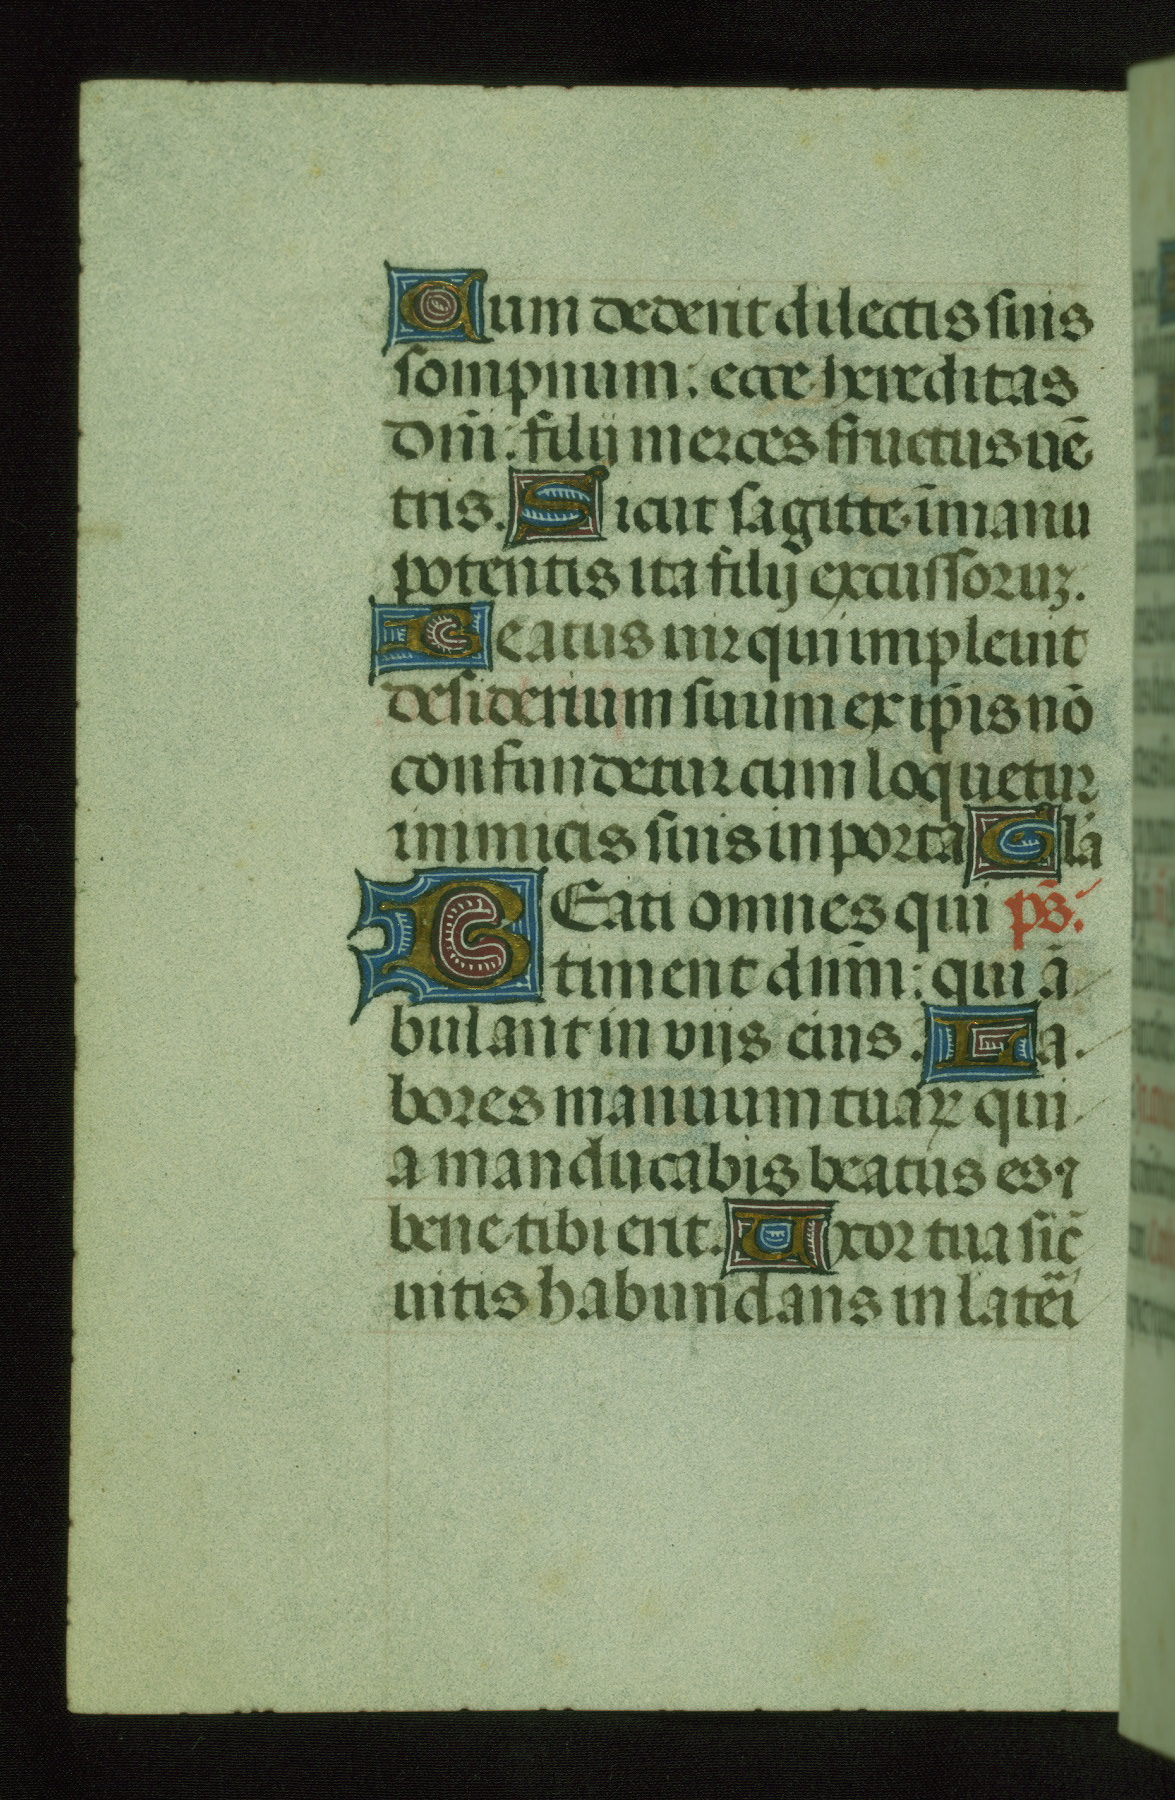 Cum dederit dilectis suis
sompnum: ecce hereditas
dñi: filij merces fructus uē
tris. Sicut sagitte ī manu
potentis ita filij excussoruꝫ.
Beatus uir qui impleuit
desiderium suum ex ip̄is nō
confundetur cum loquetur
inimicis suis in porta Gl̄a
BEati omnes qui p̄s.
timent dūm: qui ā
bulant in vijs eius. La
bores manuum tuaꝝ qui
a manducabis beatus es ⁊
bene tibi erit. Uxor tua sic̄
uitis habundans in latēi